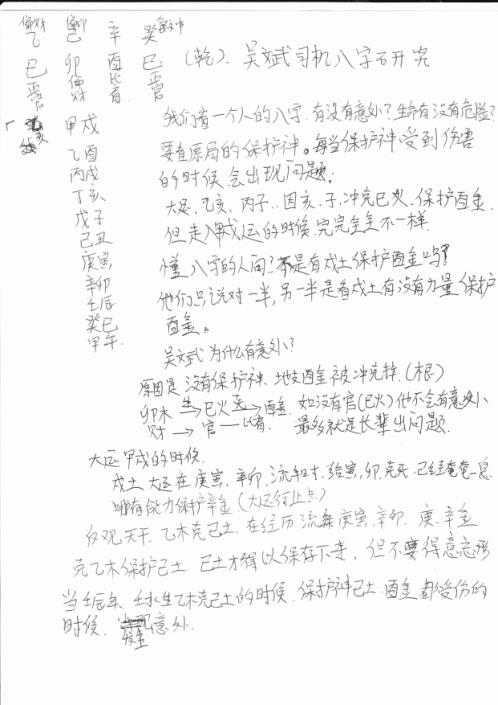 偏财 偏印 食神
乙 己 辛 癸
巳 卯 酉 巳
官 偏财 比肩 官
(乾)、吴文武司机八字研究
甲戌
乙酉
丙戌
丁亥
戊子
己丑
庚寅
辛卯
壬辰
癸巳
甲午
我们看一个人的八字,有没有意外?生命有没有危险?
要查原局的保护神。每当保护神受到伤害
的时候会出现问题。
大运、乙亥、丙子、因亥、子、冲克巳火、保护酉金、
但走入甲戌运的时候、完完全全不一样
懂八字的人问?不是有戌土保护酉金吗?
他们只说对一半,另一半是看戌土有没有力量保护
酉金。
吴文武为什么有意外?
原因是没有保护神、地支酉金被冲克掉、(根)
卯木 生→巳火 克→酉金、如没有官(巳火)他不会有意外
财 → 官 — 比肩、最多就是长辈出问题.
大运甲戌的时候、
戌土大运在庚寅、辛卯、流年时、给寅,卯克死、已经奄奄一息
哪有能力保护辛金(大运行止点)
反观天干、乙木克己土、在经历流年庚寅、辛卯、庚、辛金
克乙木保护己土、己土才得以保存下来、但不要得意忘形
当壬辰年、壬水生乙木克己土的时候、保护神己土、酉金都受伤的
时候、发生意外.